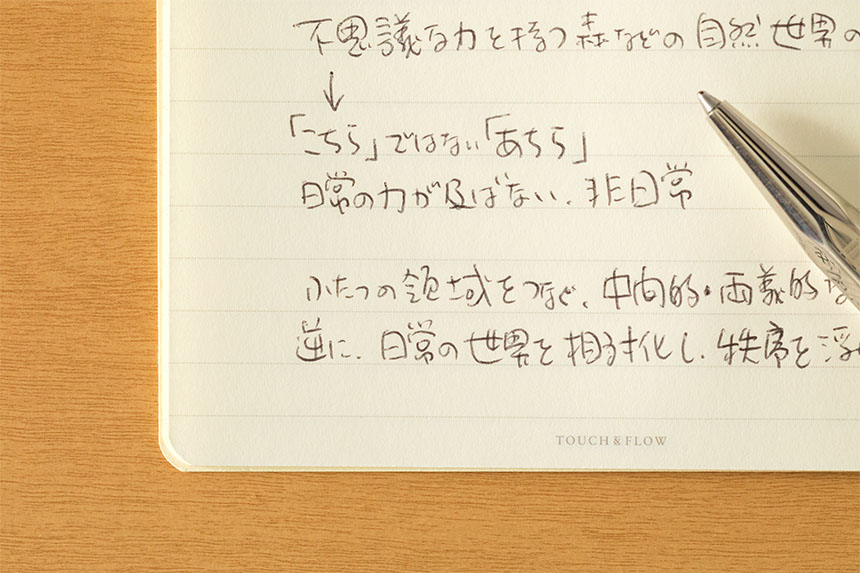 不思議な力を持つ森などの自然世界の
↓
「こちら」ではない「あちら」
日常の力が及ばない、非日常
ふたつの領域をつなぐ、中間的・両義的な
逆に、日常の世界を相対化し、秩序を浮
TOUCH & FLOW